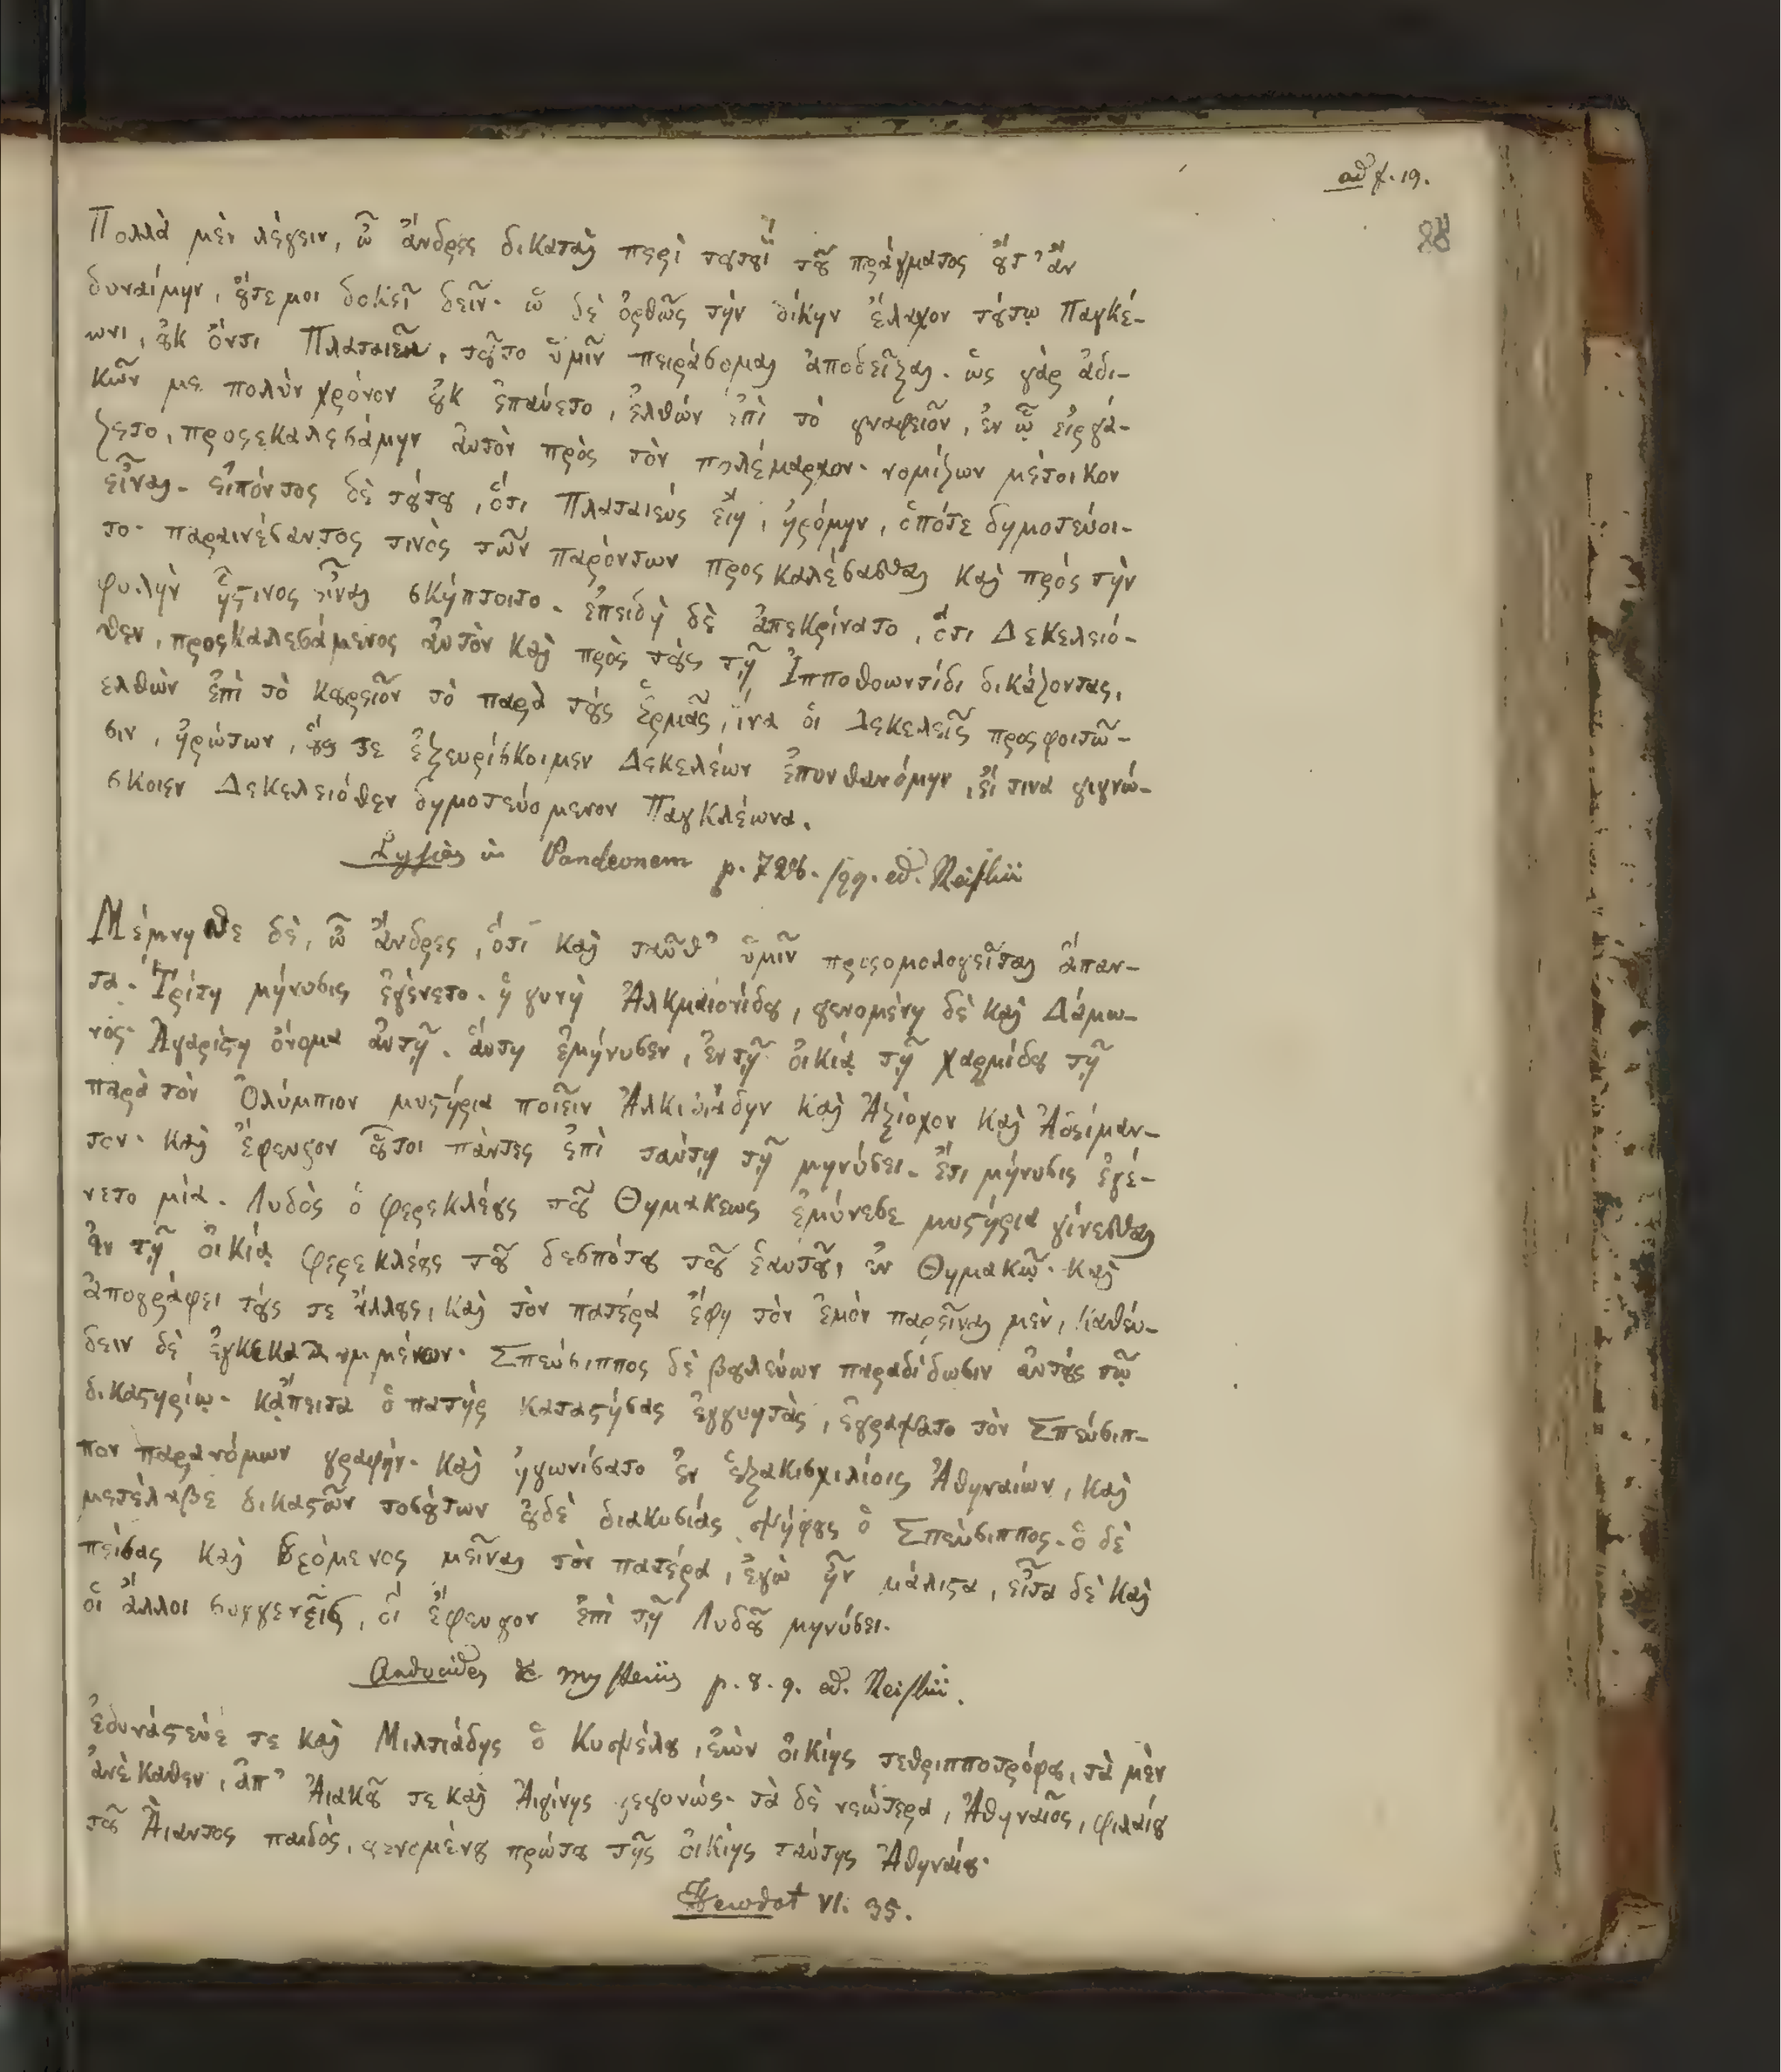 ad p. 19.
28
Πολλὰ μὲν λέγειν, ὦ ἄνδρες δικασταὶ περὶ τουτουῒ τοῦ πράγματος οὔτ' ἂν
δυναίμην, οὔτε μοι δοκεῖ δεῖν· ὡ δὲ ὀρθῶς τὴν δίκην ἔλαχον τούτῳ Παγκέ-
ωνι, οὐκ ὄντι Πλαταιεῖ, τοῦτο ὑμῖν πειράσομαι ἀποδεῖξαι. ὡς γὰρ ἀδι-
κῶν με πολὺν χρόνον οὐκ ἐπαύετο, ἐλθὼν ἐπὶ τὸ γναφεῖον, ἐν ᾧ εἰργά-
ζετο, προσεκαλεσάμην ἀυτὸν πρὸς τὸν πολέμαρχον· νομίζων μέτοικον
εἶναι. εἰπόντος δὲ τούτου, ὅτι Πλαταιεύς εἴη, ἠρόμην, ὁπότε δημοτεύοι-
το· παραινέσαντος τινὸς τῶν παρόντων προς καλέσασθαι καὶ πρὸς τὴν
φυλὴν ἧςτινος εἶναι σκήπτοιτο. ἐπειδὴ δὲ ἀπεκρίνατο, ὅτι Δεκελειό-
θεν, προςκαλεσάμενος ἀυτὸν καὶ πρὸς τοὺς τῇ Ἱπποθοωντίδι δικάζοντας,
ελθὼν ἐπὶ τὸ κουρεῖον τὸ παρὰ τοὺς ἑρμᾶς, ἵνα ὁι Δεκελεῖς προςφοιτῶ-
σιν, ἠρώτων, οὕς τε ἐξευρίσκοιμεν Δεκελέων ἐπυνθανόμην, εἴ τινα γιγνώ-
σκοιεν Δεκελειόθεν δημοτευόμενον Παγκλέωνα.
Lysias in Pancleonem p. 728. sqq. ed. Reiskii
Μέμνησθε δὲ, ὦ ἄνδρες, ὅτι καὶ ταῦθ' ὑμῖν προσομολογεῖται ἅπαν-
τα. Τρίτη μήνυσις ἐγένετο. ἡ γυνὴ Ἀλκμαιονίδου, γενομένη δὲ καὶ Δάμω-
νος· Ἀγαρίστη ὄνομα ἀυτῇ. ἅυτη ἐμήνυσεν, ἐν τῇ ὀικίᾳ τῇ χαρμίδου τῇ
παρὰ τὸν Ὀλύμπιον μυστήρια ποιεῖν Ἀλκιβιάδην καὶ Ἀξίοχον καὶ Ἀδείμαν-
τον· καὶ ἔφευγον οὗτοι πάντες ἐπὶ ταύτῃ τῇ μηνύσει. ἔτι μήνυσις ἐγέ-
νετο μία. Λυδὸς ὁ φερεκλέους τοῦ Θημακεως ἐμήνυσε μυστήρια γίνεσθαι
ἐν τῇ ὀικίᾳ φερεκλέους τοῦ δεσπότου τοῦ ἑαυτοῦ, ἐν Θημακῷ· καὶ
ἀπογράφει τούς τε ἄλλους, καὶ τὸν πατέρα ἔφη τὸν ἐμὸν παρεῖναι μὲν, καθέυ-
δειν δὲ ἐγκεκαλυμμένον. Σπεύσιππος δὲ βουλεύων παραδίδωσιν ἀυτοὺς τῷ
δικαστηρίῳ. κᾄπειτα ὁ πατὴρ καταστήσας ἐγγυητὰς, ἐγράψατο τὸν Σπεύσιπ-
πον παρανόμων γραφήν. καὶ ἠγωνίσατο ἐν ἑξακισχιλίοις Ἀθηναίων, καὶ
μετέλαβε δικαστῶν τοσούτων οὐδὲ διακοσίας ψήφους ὁ Σπεύσιππος. ὁ δὲ
πείσας καὶ δεόμενος μεῖναι τὸν πατέρα, ἐγὼ ἦν μάλιστα, εἶτα δὲ καὶ
ὁι ἄλλοι συγγενεῖς, ὁὶ ἔφευγον ἐπὶ τῇ Λυδοῦ μηνύσει.
Andocides de mysteriis p. 8. 9. ed. Reiskii.
ἐδυνάστευέ τε καὶ Μιλτιάδης ὁ Κυψέλου, ἐὼν ὀικίης τεθριπποτρόφου, τὰ μὲν
ἀνέκαθεν, ἀπ' Ἀιακοῦ τε καὶ Ἀιγίνης γεγονώς. τὰ δὲ νεώτερα, Ἀθηναῖος, φιλαίου
τοῦ Ἀίαντος παιδὸς, γενομένου πρώτου τῆς ὀικίης ταύτης Ἀθηναίου.
Herodot VI. 35.